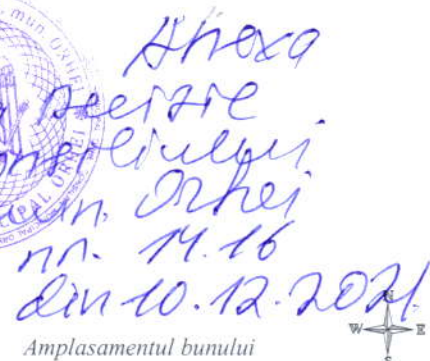 mun. ORHEI
Anexa
decizie
Consiliului
mun. Orhei
nr. 14.16
din 10.12.2021.
Amplasamentul bunului
W E
S